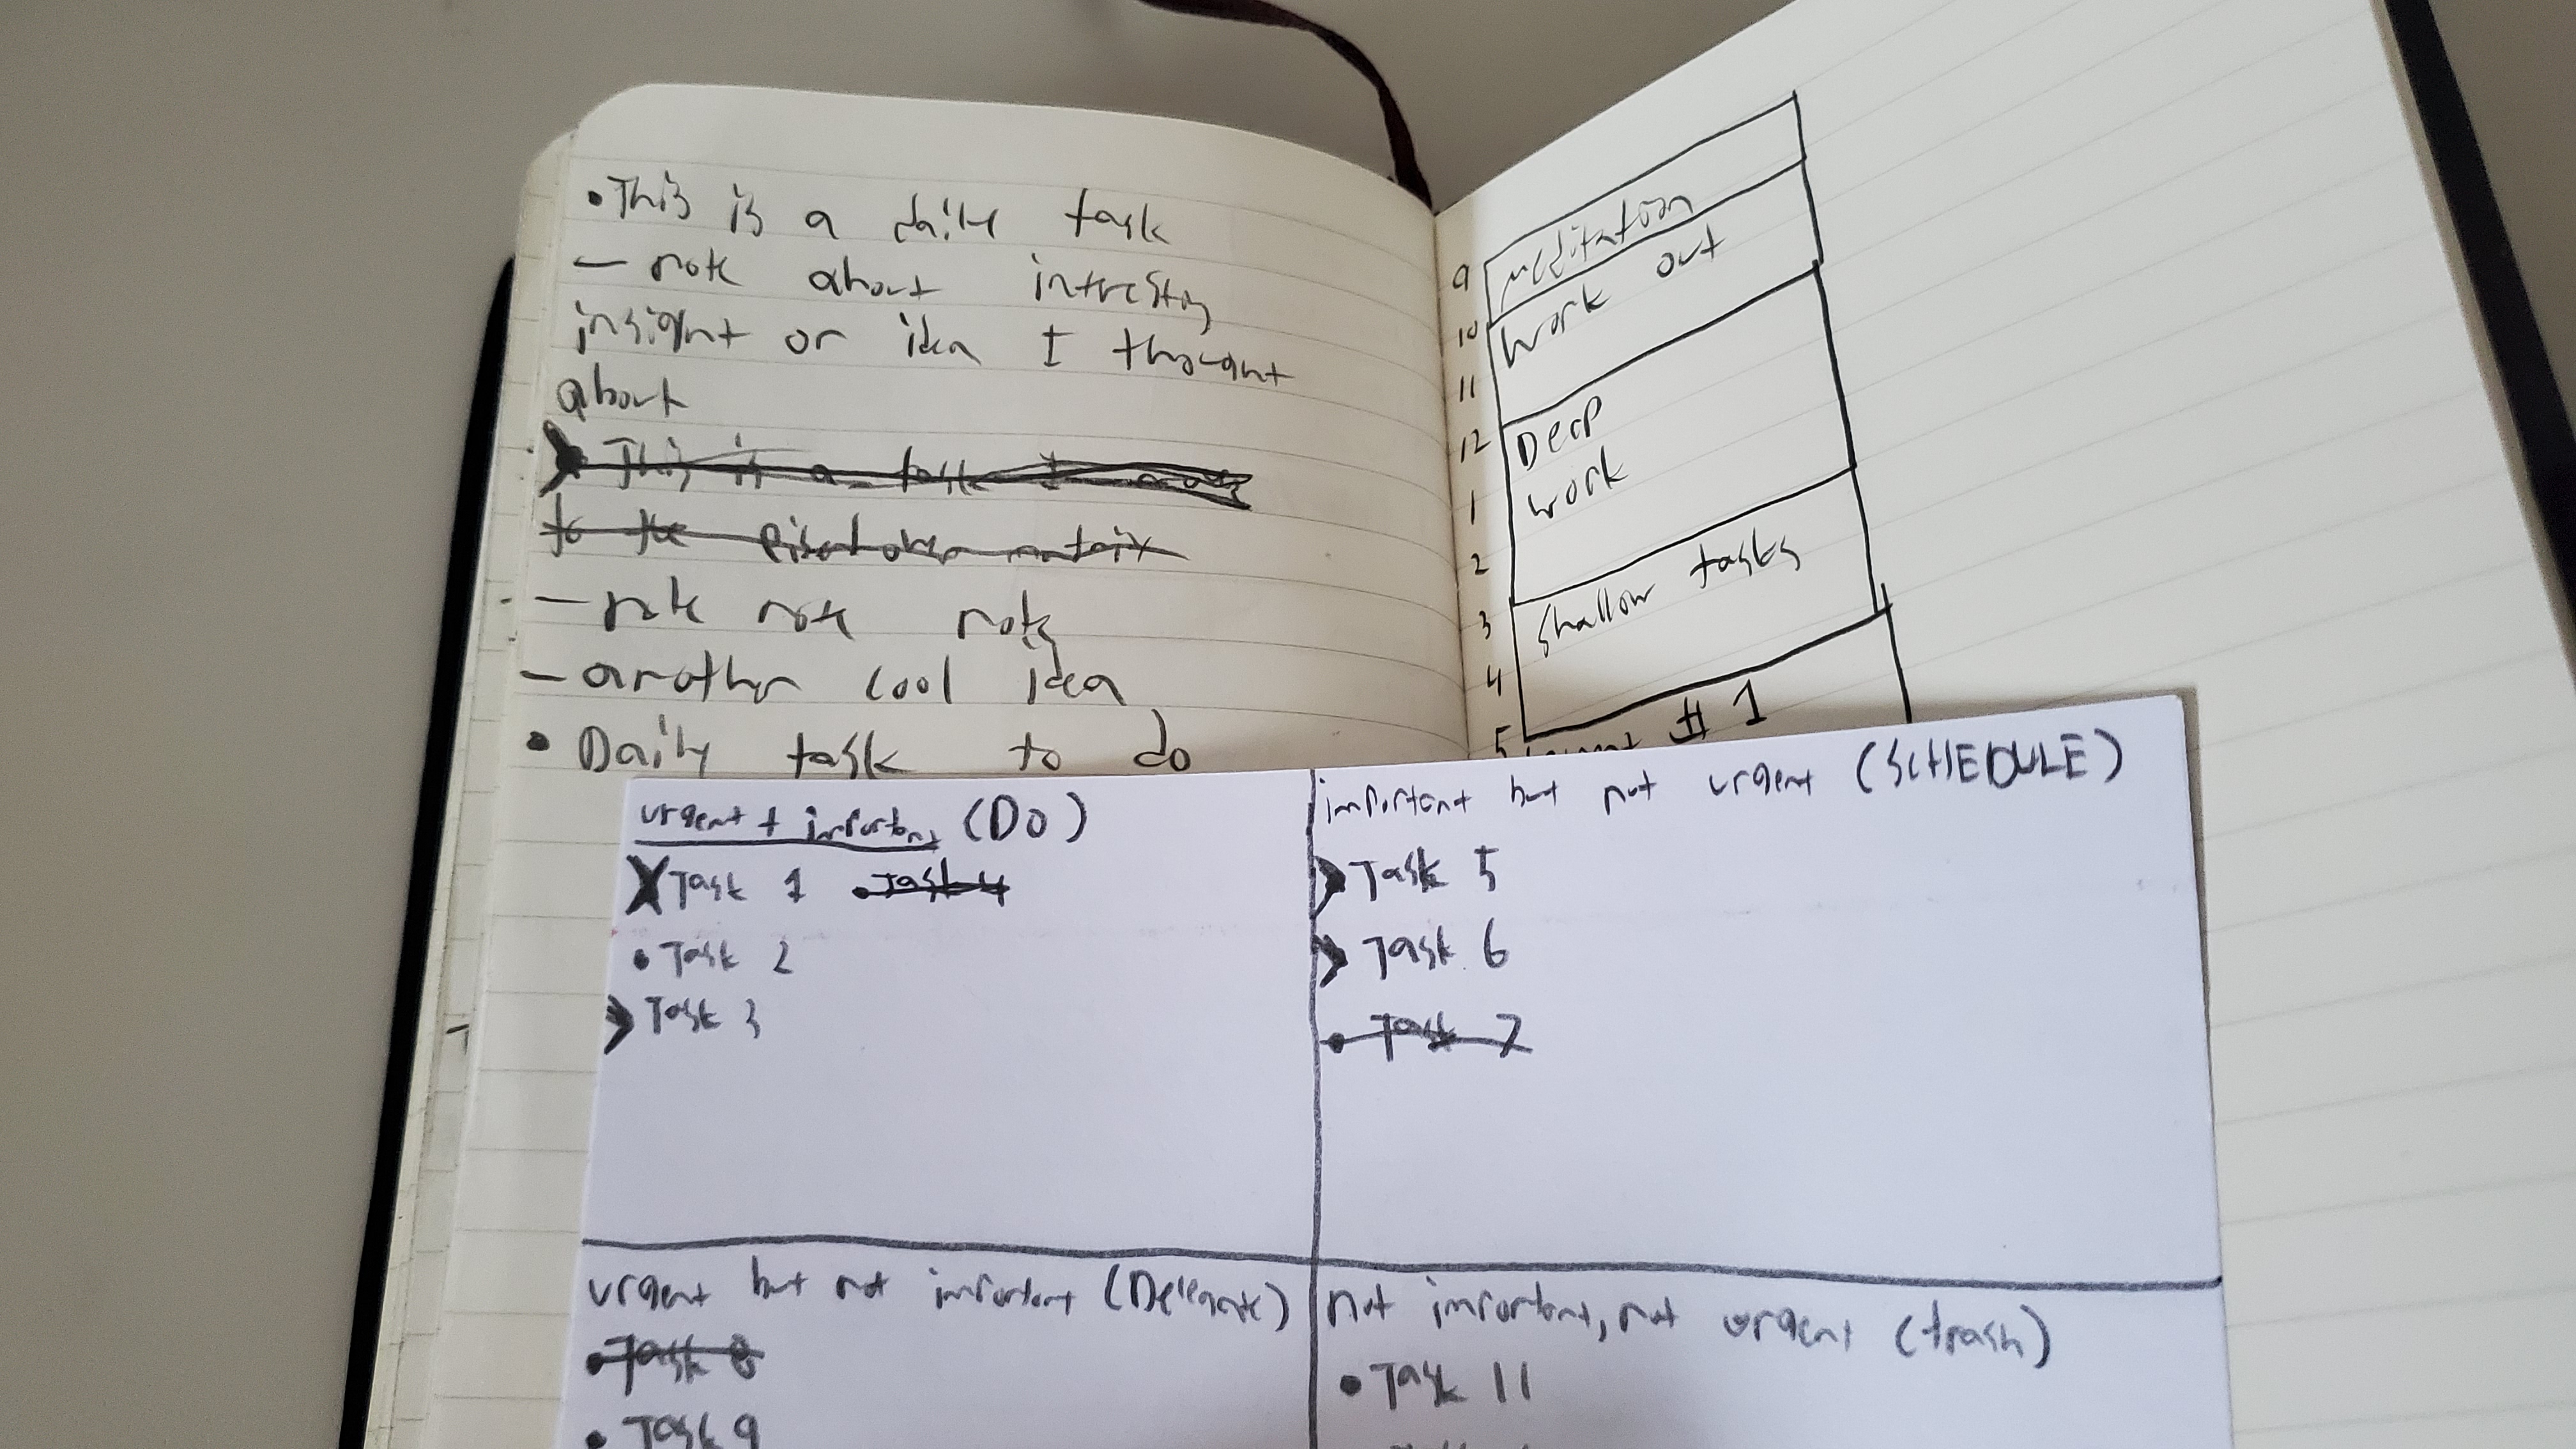 • This is a daily task
— note about intresting
insight or idea I thought
about
This is a task I move
to the eisenhower matrix
— note note note
— another cool idea
• Daily task to do
9 meditation
10 work out
11
12 Deep
1 work
2
3 shallow tasks
4
5 # 1
urgent + important (DO)
X Task 1 • Task 4
• Task 2
> Task 3
important but not urgent (SCHEDULE)
> Task 5
> Task 6
• Task 7
urgent but not important (Delegate)
• Task 8
• Task 9
not important, not urgent (trash)
• Task 11